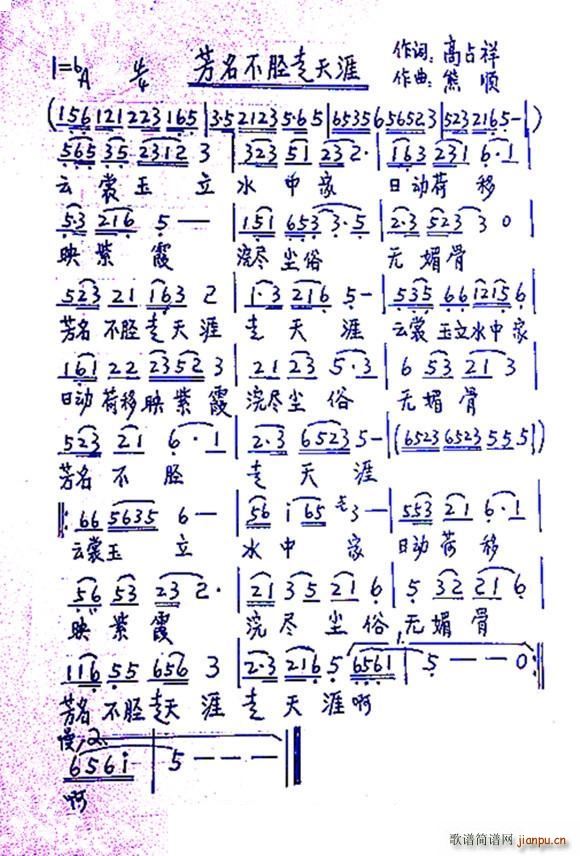 1=bA 4/4 芳名不胫走天涯 作词:高占祥
作曲:熊顺
(156 121223 165|3·5 2123 5·6 5|65356 56523|523 2165-|)
565 35 2312 3|323 51 232·|163 231 6·1
云裳玉立 水中家 日动荷移
5·3 216 5——|151 653 3·5|2·3 523 3 0
映紫霞 浣尽尘俗 无媚骨
523 21 163 2|1·3 216 5-|535 66 1215 6
芳名不胫走天涯 走天涯 云裳玉立水中家
161 22 2352 3|21 23 5·3|6 53 21 3
日动荷移映紫霞 浣尽尘俗 无媚骨
523 21 6·1|2·3 6523 5-|(6523 6523 5 5 5|)
芳名不胫 走天涯
‖:66 5635 6—|56 i 65 3—|553 21 6·1
云裳玉立 水中家 日动荷移
56 53 23 2·|21 35 21 6|5 32 21 6
映紫霞 浣尽尘俗 无媚骨
1.
116 55 656 3|2·3 216 5 6561|5——0:‖
芳名不胫走天涯 走天涯啊
慢 2.
656i|5———‖
啊
歌谱简谱网
jianpu.cn